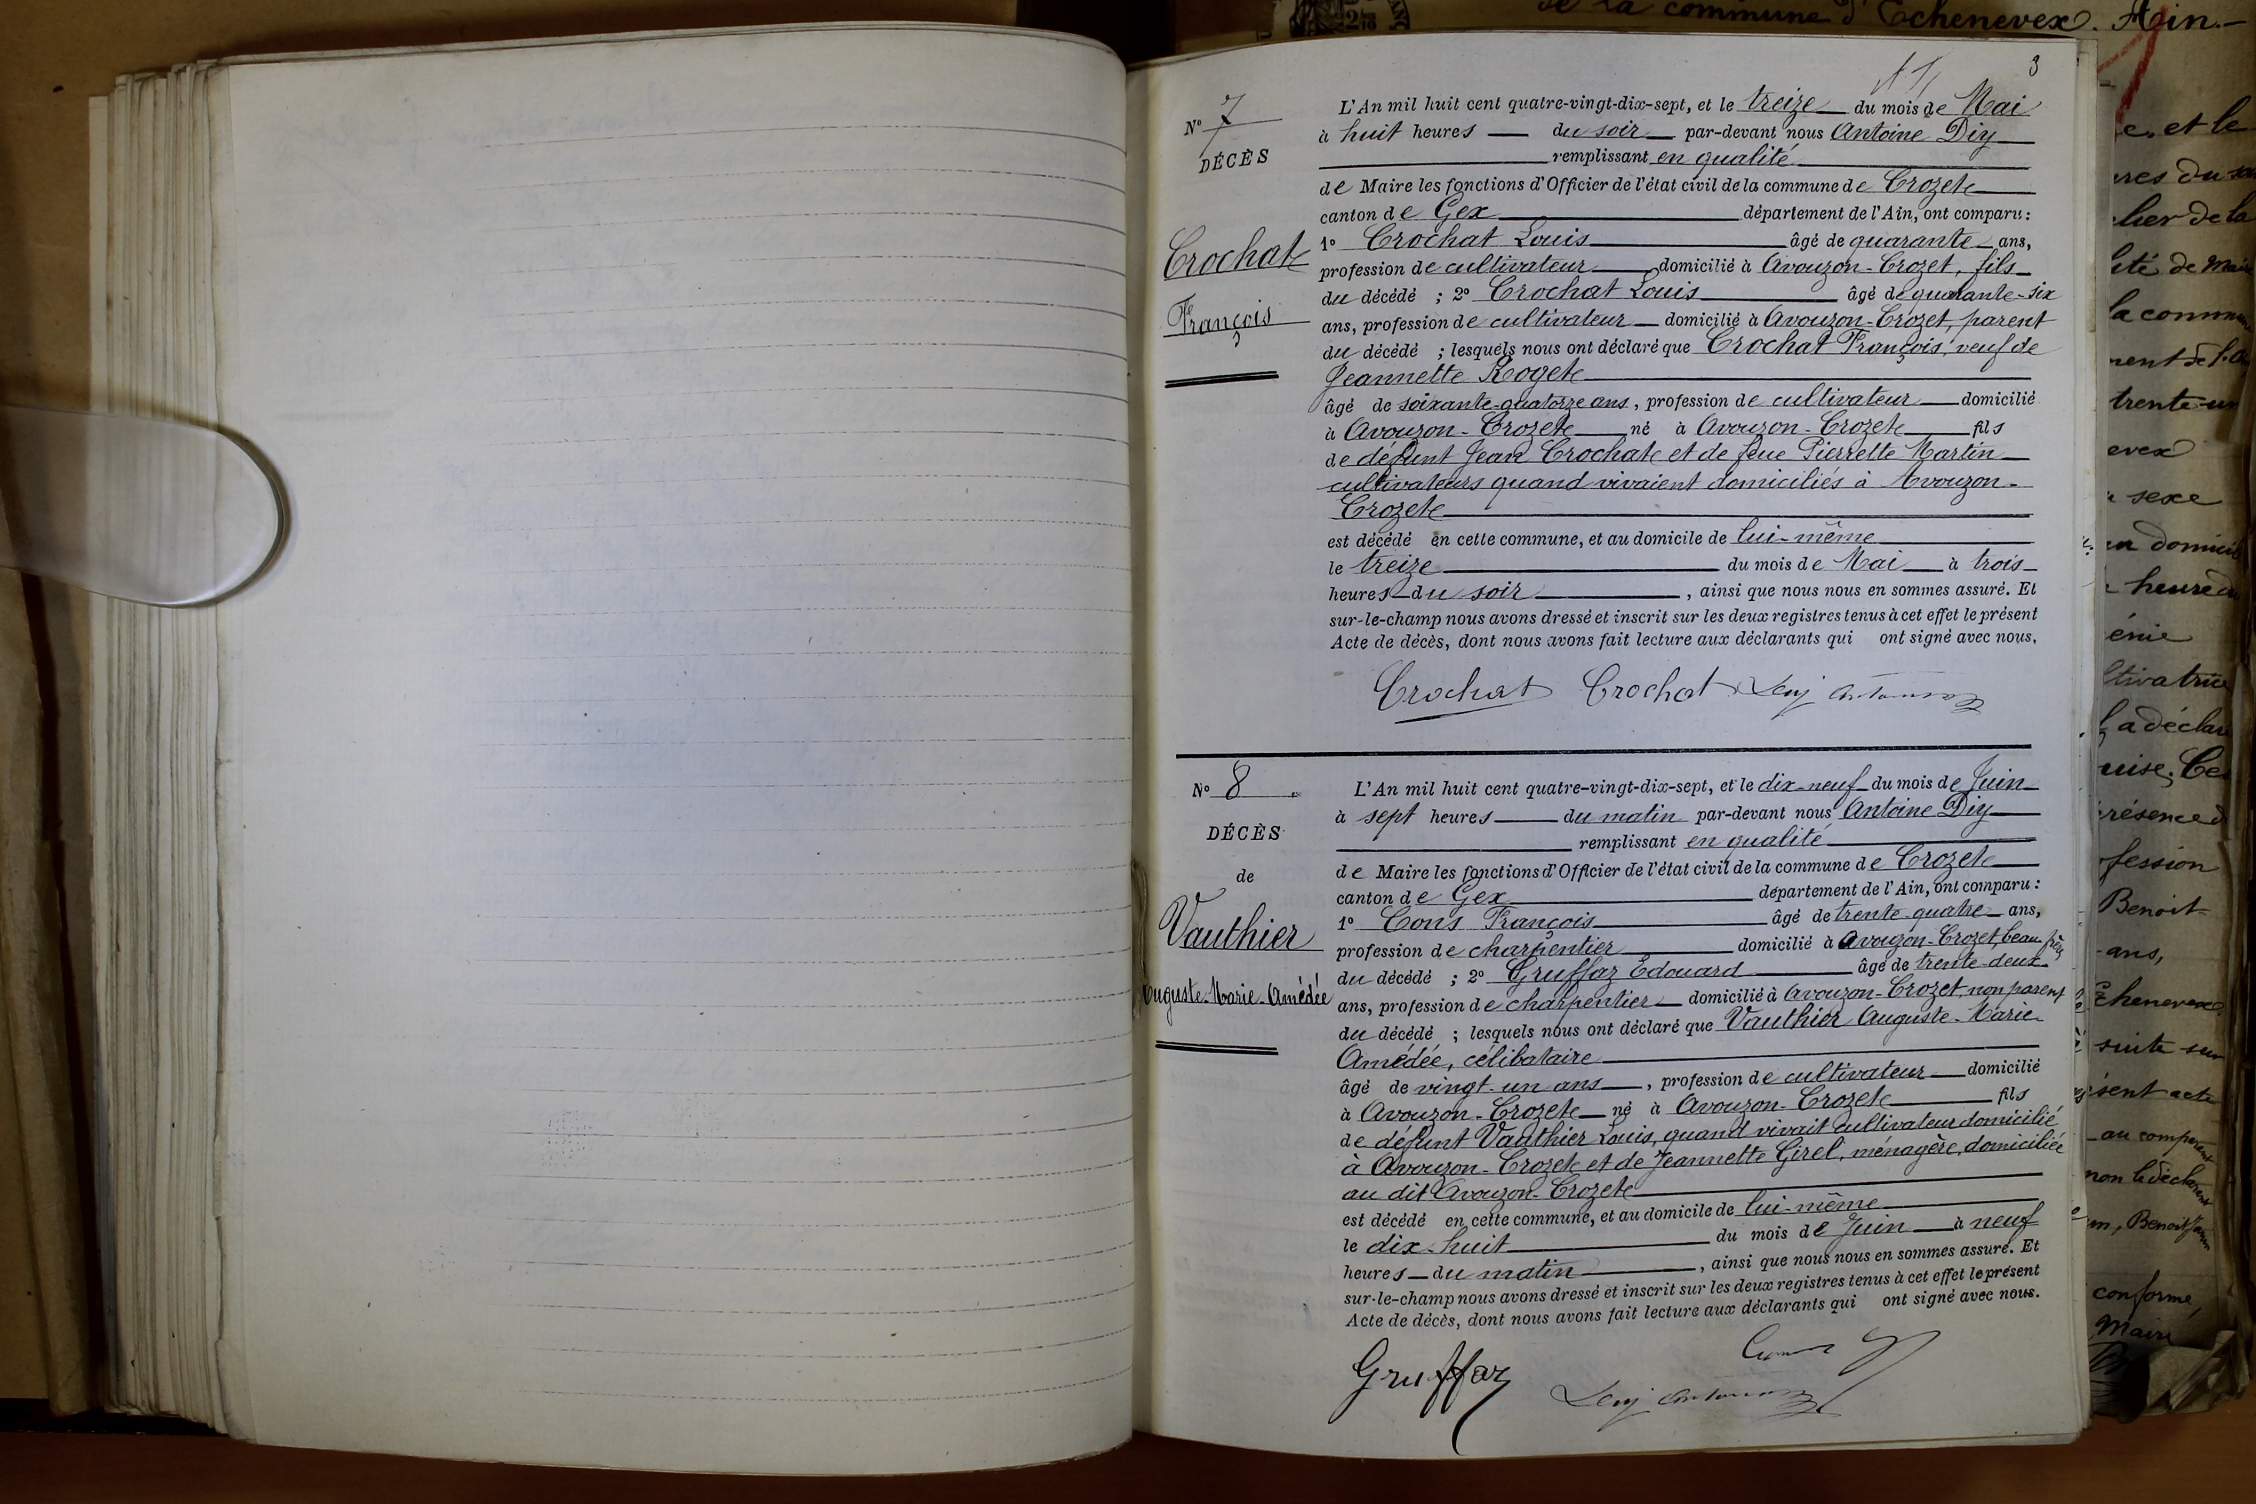 de la commune d'Echenevex. Ain.-
3
N° 7
DÉCÈS
Crochat
François
L'An mil huit cent quatre-vingt-dix-sept, et le treize du mois de Mai
à huit heures du soir par-devant nous Antoine Diy
remplissant en qualité
de Maire les fonctions d'Officier de l'état civil de la commune de Crozet
canton de Gex département de l'Ain, ont comparu :
1° Crochat Louis âgé de quarante ans,
profession de cultivateur domicilié à Avouzon-Crozet, fils
du décédé ; 2° Crochat Louis âgé de quarante-six
ans, profession de cultivateur domicilié à Avouzon-Crozet, parent
du décédé ; lesquels nous ont déclaré que Crochat François, veuf de
Jeannette Roget
âgé de soixante-quatorze ans, profession de cultivateur domicilié
à Avouzon-Crozet né à Avouzon-Crozet fils
de défunt Jean Crochat et de feue Pierrette Martin
cultivateurs quand vivaient domiciliés à Avouzon-
Crozet
est décédé en cette commune, et au domicile de lui-même
le treize du mois de Mai à trois
heures du soir, ainsi que nous nous en sommes assuré. Et
sur-le-champ nous avons dressé et inscrit sur les deux registres tenus à cet effet le présent
Acte de décès, dont nous avons fait lecture aux déclarants qui ont signé avec nous.
Crochat Crochat
N° 8
DÉCÈS
de
Vauthier
Auguste-Marie-Amédée
L'An mil huit cent quatre-vingt-dix-sept, et le dix-neuf du mois de Juin
à sept heures du matin par-devant nous Antoine Diy
remplissant en qualité
de Maire les fonctions d'Officier de l'état civil de la commune de Crozet
canton de Gex département de l'Ain, ont comparu :
1° Cons François âgé de trente-quatre ans,
profession de charpentier domicilié à Avouzon-Crozet, beau-frère
du décédé ; 2° Gruffaz Edouard âgé de trente-deux
ans, profession de charpentier domicilié à Avouzon-Crozet, non parent
du décédé ; lesquels nous ont déclaré que Vauthier Auguste-Marie-
Amédée, célibataire
âgé de vingt-un ans, profession de cultivateur domicilié
à Avouzon-Crozet né à Avouzon-Crozet fils
de défunt Vauthier Louis, quand vivait cultivateur domicilié
à Avouzon-Crozet et de Jeannette Girel, ménagère, domiciliée
au dit Avouzon-Crozet
est décédé en cette commune, et au domicile de lui-même
le dix-huit du mois de Juin à neuf
heures du matin, ainsi que nous nous en sommes assuré. Et
sur-le-champ nous avons dressé et inscrit sur les deux registres tenus à cet effet le présent
Acte de décès, dont nous avons fait lecture aux déclarants qui ont signé avec nous.
Gruffaz
et le
du
de la
de
la
trente-un
sexe
heure
a
présence
Benoit
ans,
Echenevex
suite sur
acte
au
non le
Benoit
conforme,
Maire